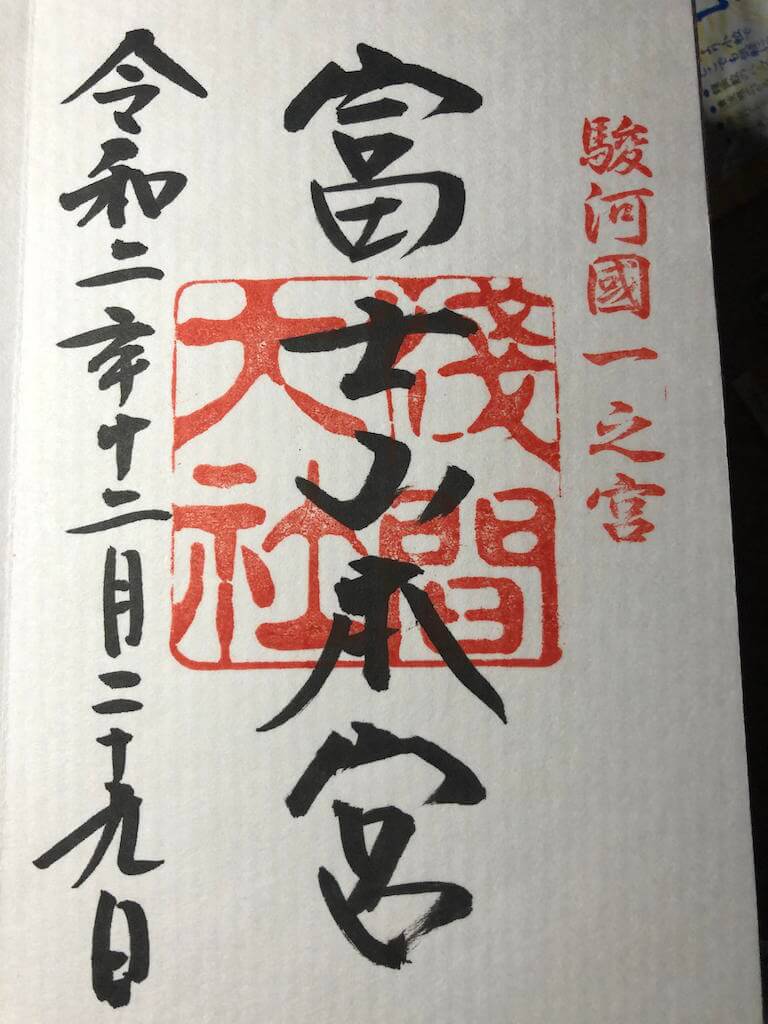 駿河國一之宮
富士山本宮
淺間大社
令和二年十二月二十九日